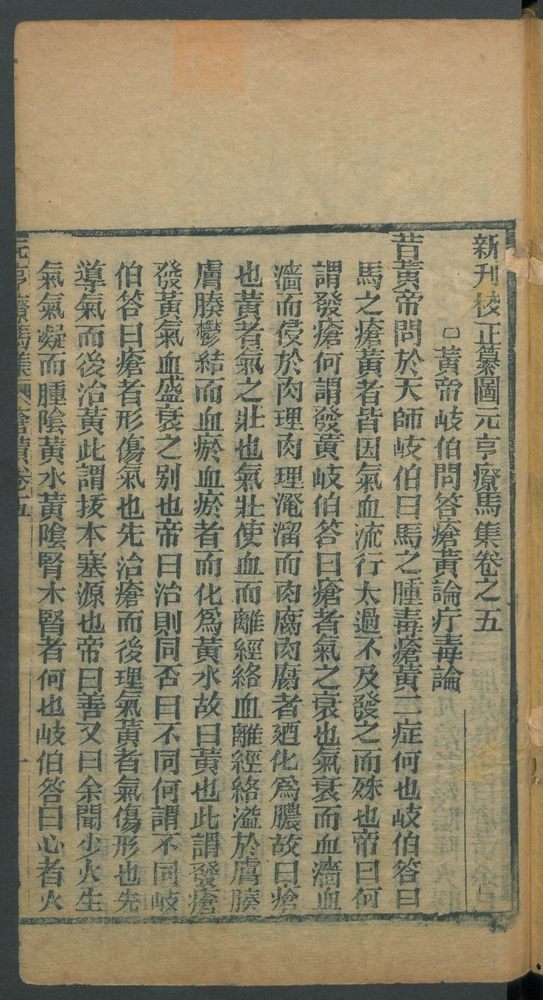 新刊校正纂圖元亨療馬集卷之五
○黃帝岐伯問答瘡黃論疔毒論
昔黃帝問於天師岐伯曰馬之腫毒瘡黃二症何也岐伯答曰
馬之瘡黃者皆因氣血流行太過不及發之而殊也帝曰何
謂發瘡何謂發黃岐伯答曰瘡者氣之衰也氣衰而血澑血
澑而侵於肉理肉理淹溜而肉腐肉腐者廼化爲膿故曰瘡
也黃者氣之壯也氣壯使血而離經絡血離經絡溢於膚腠
膚腠鬱結而血瘀血瘀者而化爲黃水故曰黃也此謂發瘡
發黃氣血盛衰之别也帝曰治則同否曰不同何謂不同岐
伯答曰瘡者形傷氣也先治瘡而後理氣黃者氣傷形也先
導氣而後治黃此謂拔本塞源也帝曰善又曰余聞少火生
氣氣凝而腫陰黃水黃陰腎木腎者何也岐伯答曰心者火
元亨療馬集 瘡黃卷五 一